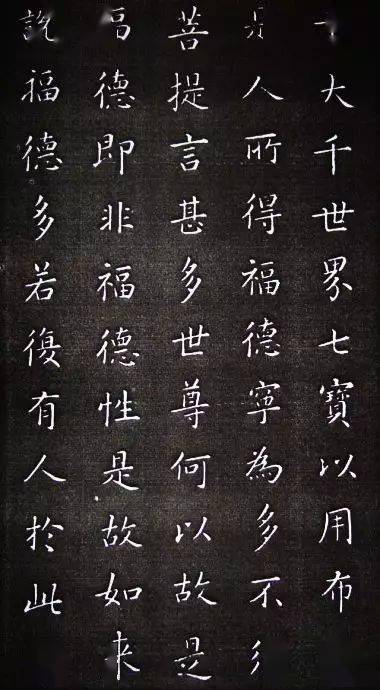 大千世界七寶以用布
人所得福德寧為多不
菩提言甚多世尊何以故是
德即非福德性是故如来
說福德多若復有人於此